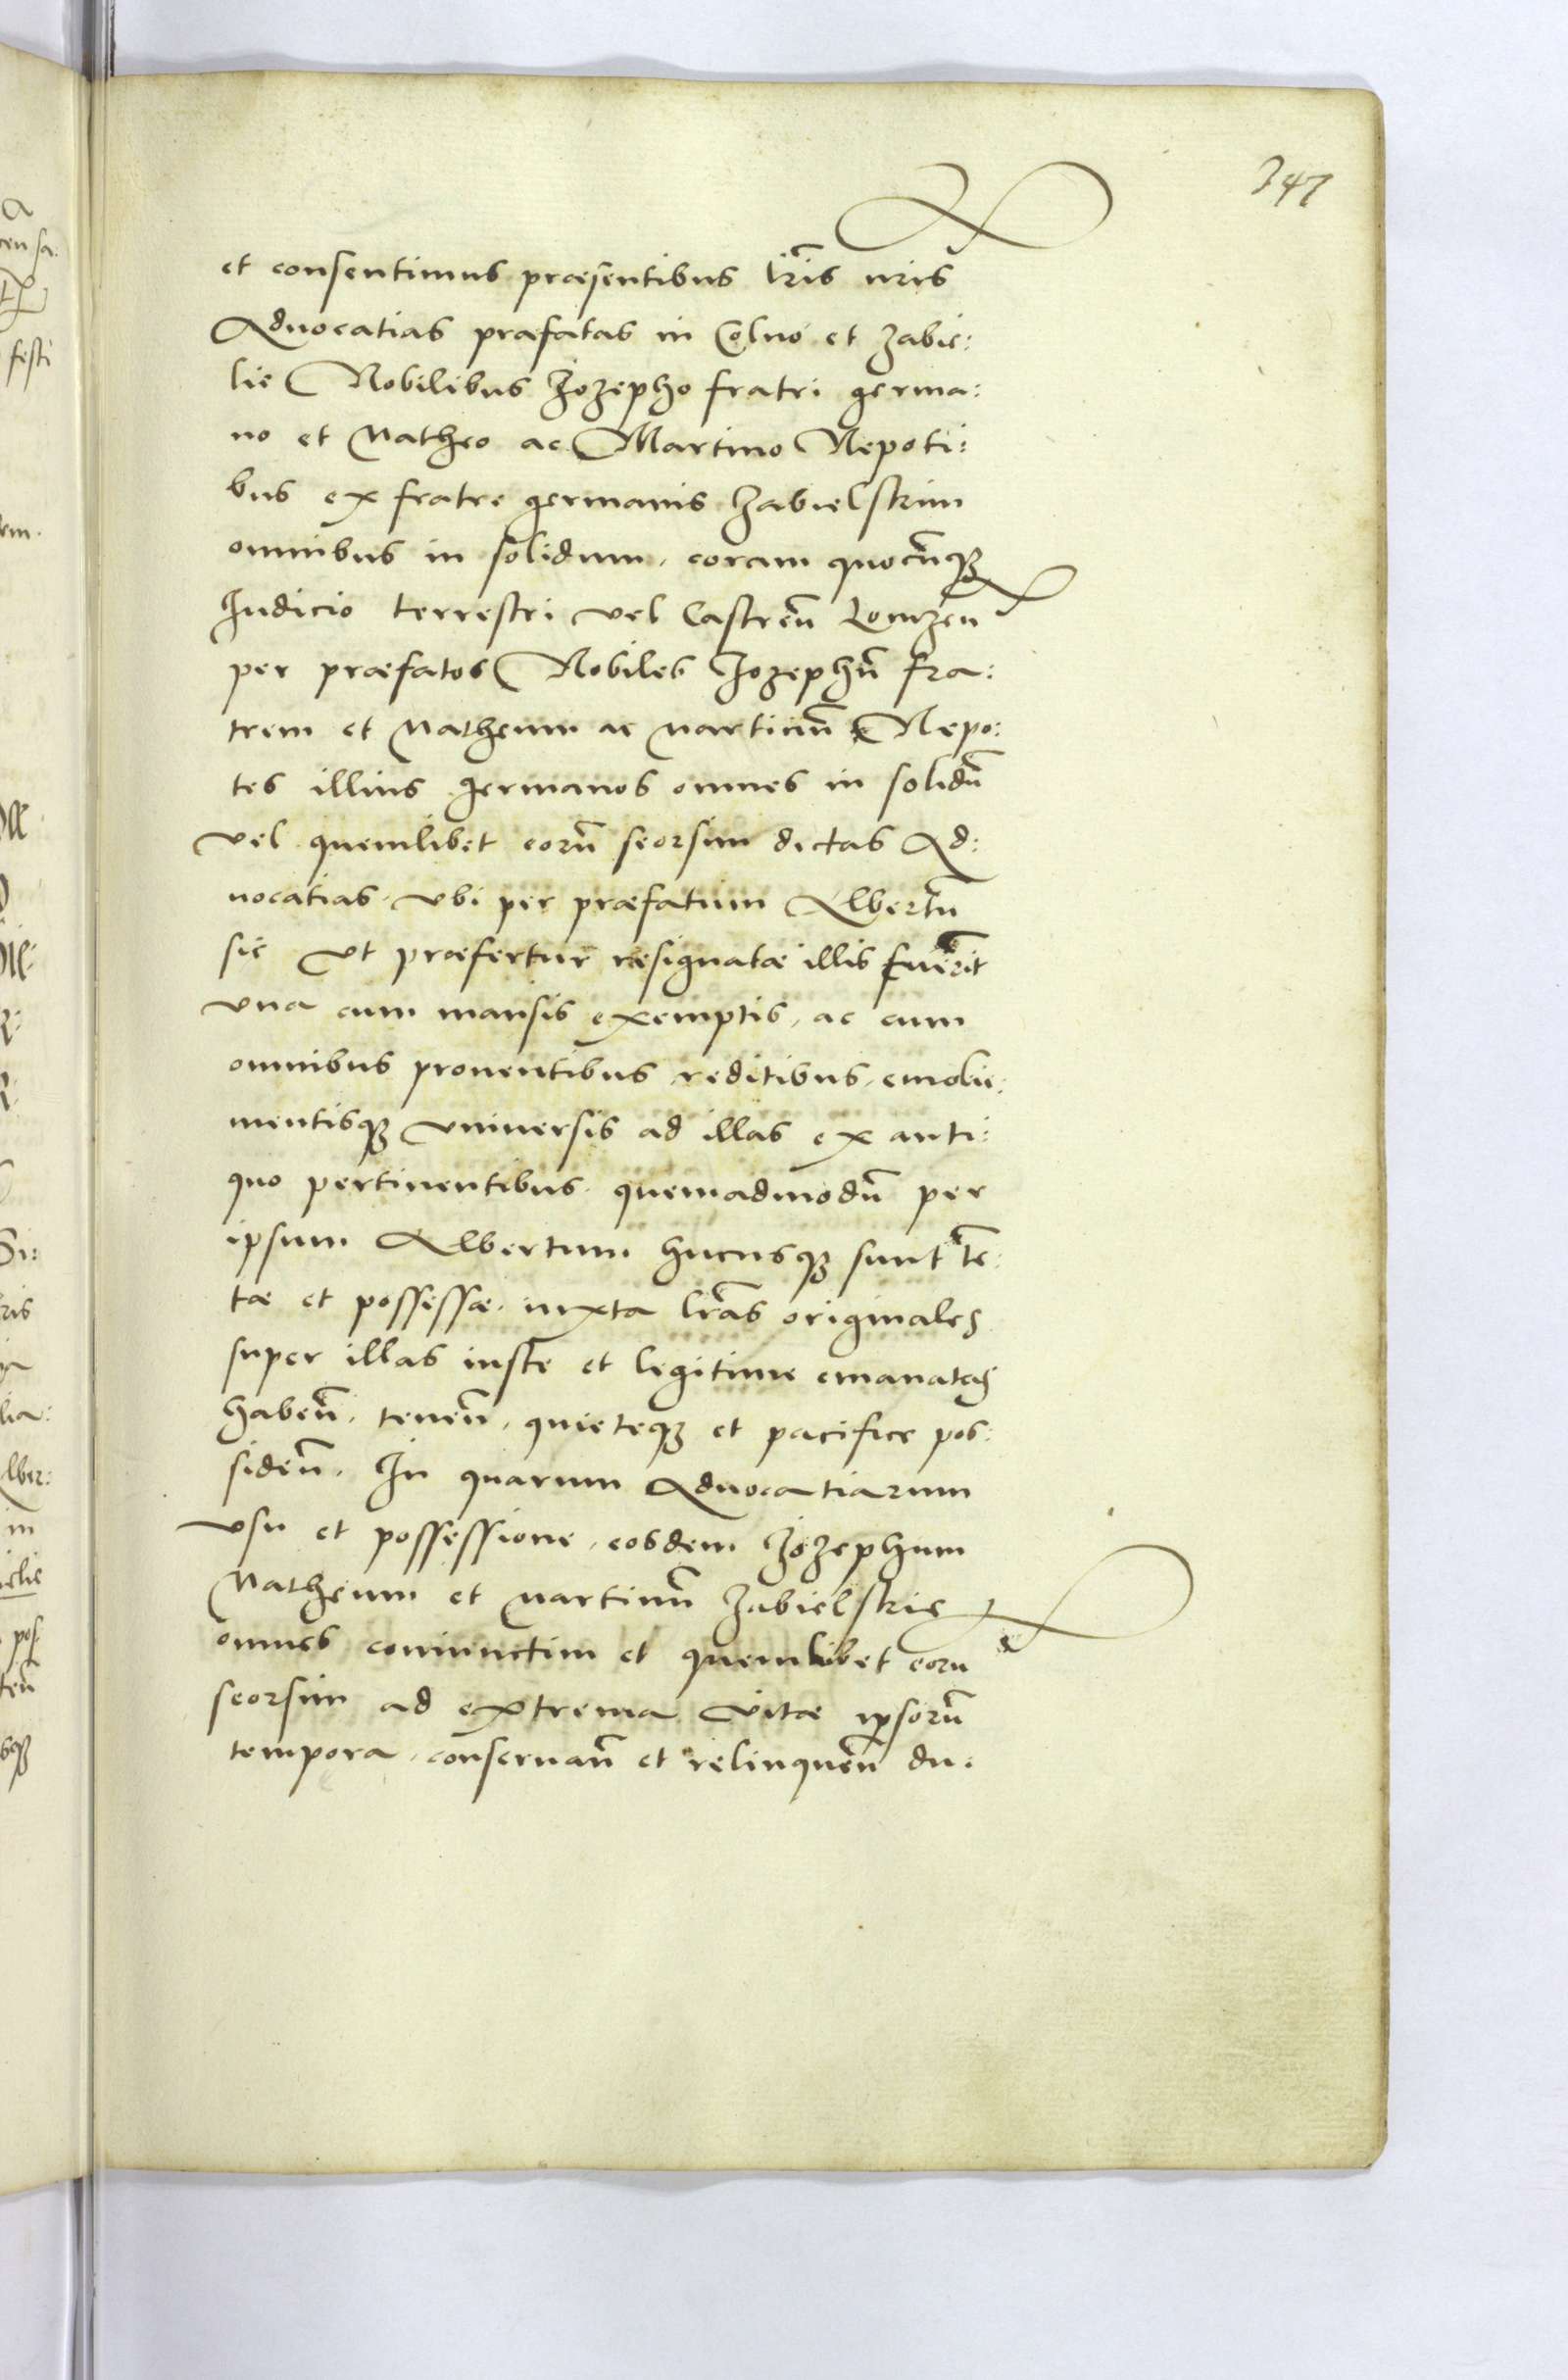 347
et consentimus præsentibus lr̃is nr̃is
Aduocatias præfatas in Colno et Zabie:
lie Nobilibus Jozepho fratri germa:
no et Matheo ac Martino Nepoti:
bus ex fratre germanis Zabielskim
omnibus in solidum, coram quocũqꝫ
Iudicio terrestri vel Castreñ Lomzeñ
per præfatos Nobiles Jozephũ fra:
trem et Matheum ac Martinũ Nepo:
tes illius germanos omnes in solidũ
vel quemlibet eorũ seorsim dictas Ad:
uocatias. vbi per præfatum Albertũ
sic vt præfertur resignatæ illis fuerĩt
vna cum mansis exemptis, ac cum
omnibus prouentibus, reditibus, emolie:
mentisqꝫ vniuersis ad illas ex anti:
quo pertinentibus. quemadmodũ per
ipsum Albertum hucusqꝫ sunt tẽ:
tæ et possessæ, iuxta lr̃as originales
super illas iuste et legitime emanatas
habeñ, teneñ, quieteqꝫ et pacifice pos:
sideñ. In quarum Aduocatiarum
vsu et possessione, eosdem Jozephum
Matheum et Martinũ Zabielskie
omnes coniunctim et quemlibet eoru
seorsim ad extrema vitæ ipsorũ
tempora, conseruañ et relinqueñ du: